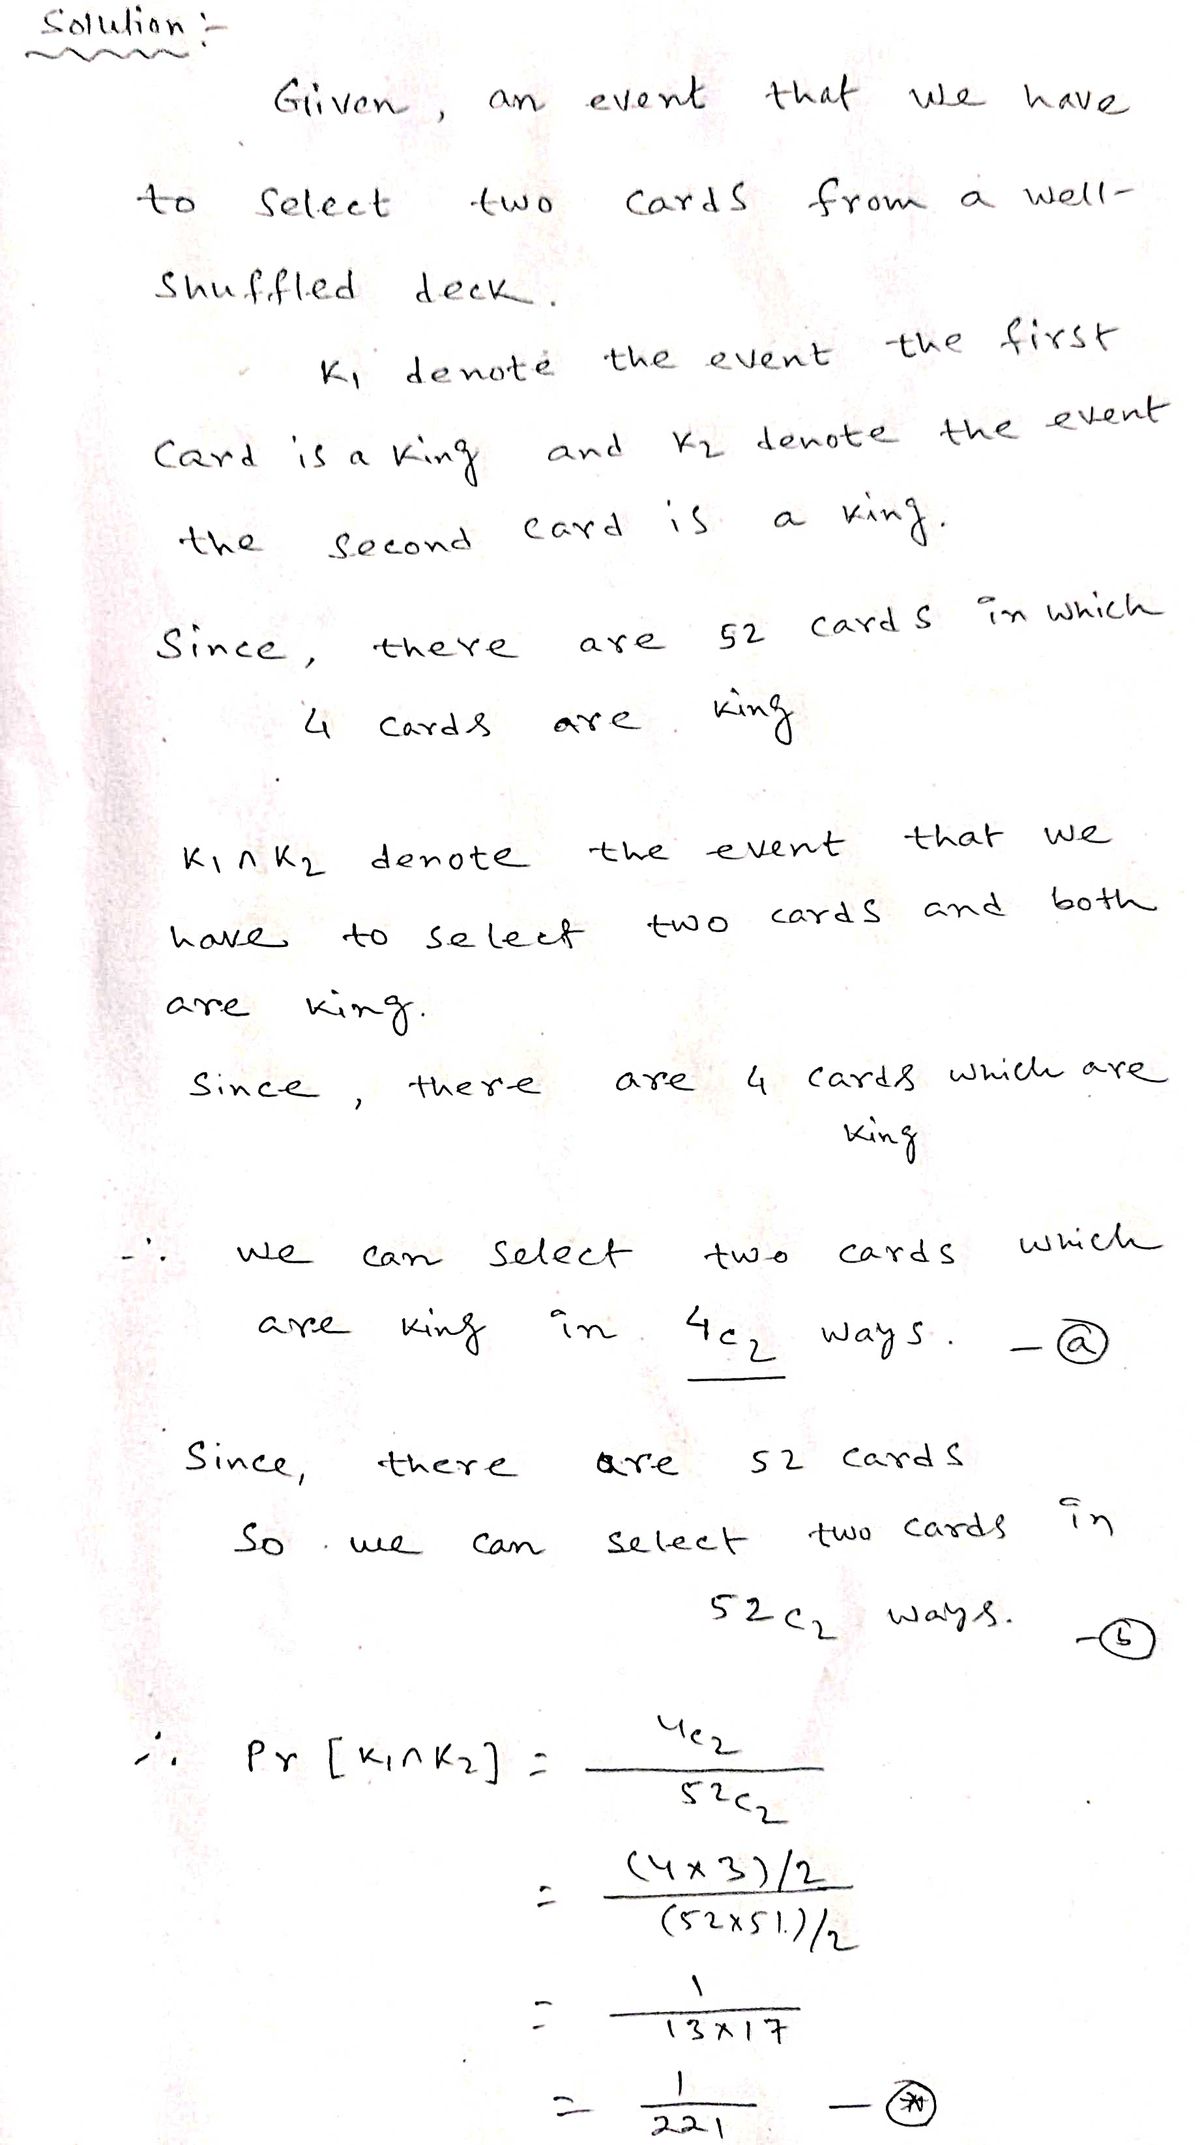 Solution :-
Given, an event that we have
to select two cards from a well-
shuffled deck.
K₁ denote the event the first
card is a king and K₂ denote the event
the second card is a king.
Since, there are 52 cards in which
4 cards are king
K₁ ∩ K₂ denote the event that we
have to select two cards and both
are king.
Since, there are 4 cards which are
king
∴ we can select two cards which
are king in 4c₂ ways. - ⓐ
Since, there are 52 cards
So we can select two cards in
52c₂ ways. - ⓑ
∴ Pr [K₁∩K₂] = 4c₂ / 52c₂
= (4×3)/2 / (52×51)/2
= 1 / 13×17
= 1 / 221 - ⊛